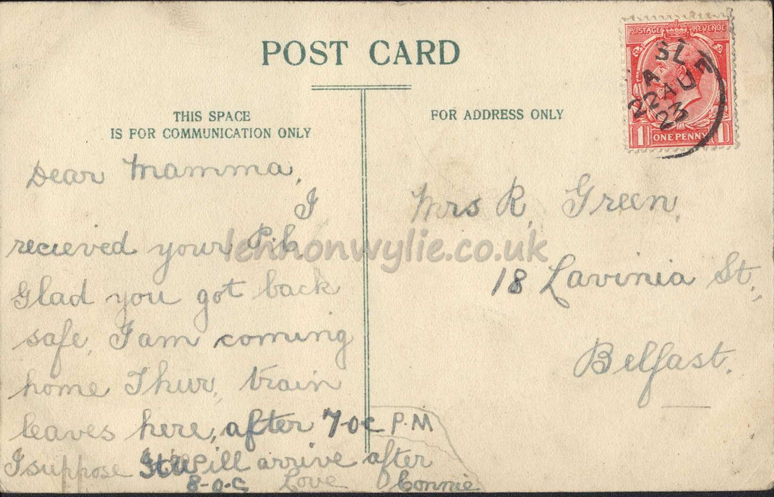 POST CARD
THIS SPACE
IS FOR COMMUNICATION ONLY
FOR ADDRESS ONLY
POSTAGE REVENUE
1 ONE PENNY 1
BLE
A
22 AU
23
Dear Mamma,
I
recieved your P.C.
Glad you got back
safe, I am coming
home Thur, train
leaves here, after 7-oc P.M
I suppose will arrive after
8-o-c Love Connie
Mrs R, Green,
18 Lavinia St.,
Belfast.
lennonwylie.co.uk